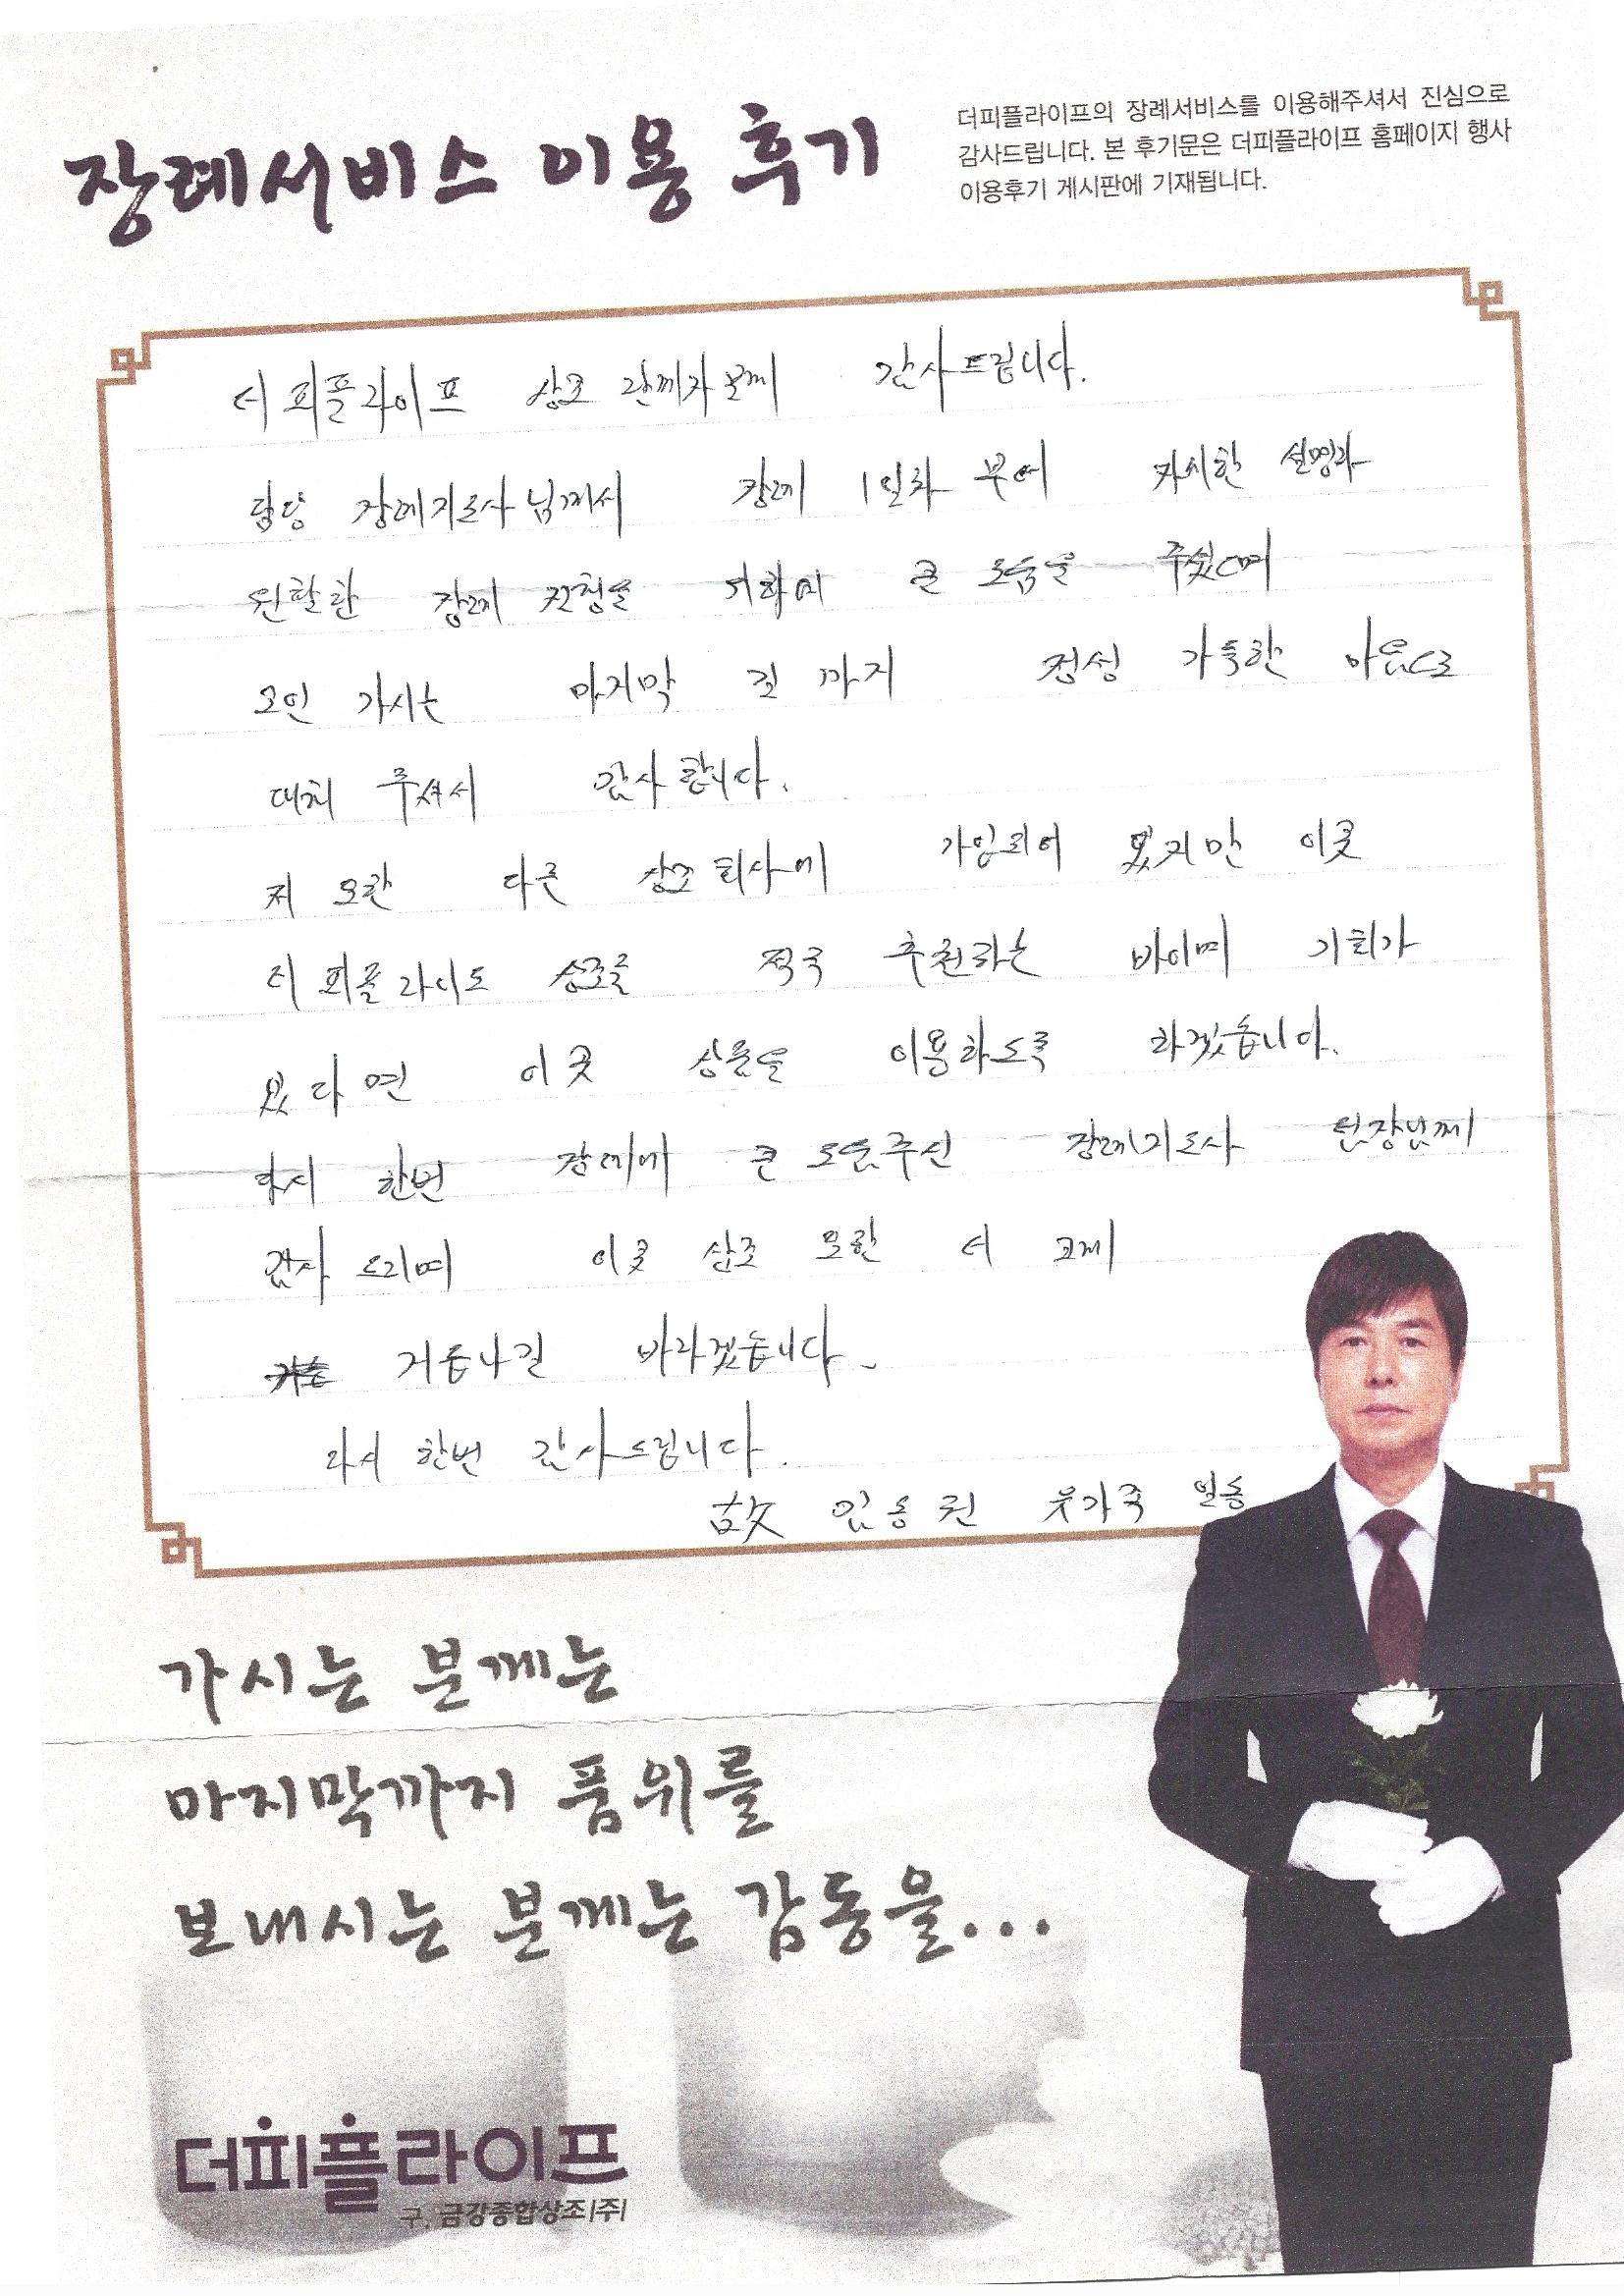 장례서비스 이용 후기
더피플라이프의 장례서비스를 이용해주셔서 진심으로
감사드립니다. 본 후기문은 더피플라이프 홈페이지 행사
이용후기 게시판에 기재됩니다.
더 피플라이프 상조 관계자분께 감사드립니다.
담당 장례지도사님께서 장례 1일차 부터 자세한 설명과
원활한 장례 진행을 위하여 큰 도움을 주셨으며
고인 가시는 마지막 길 까지 정성 가득한 마음으로
대해 주셔서 감사합니다.
저 또한 다른 상조회사에 가입되어 있지만 이곳
더 피플라이프 상조를 적극 추천하는 바이며 기회가
있다면 이곳 상품을 이용하도록 하겠습니다.
다시 한번 장례에 큰 도움주신 장례지도사 팀장님께
감사 드리며 이곳 상조 또한 더 크게
거듭나길 바라겠습니다.
다시 한번 감사드립니다.
故 임동권 유가족 일동
가시는 분께는
마지막까지 품위를
보내시는 분께는 감동을...
더피플라이프
구. 금강종합상조(주)